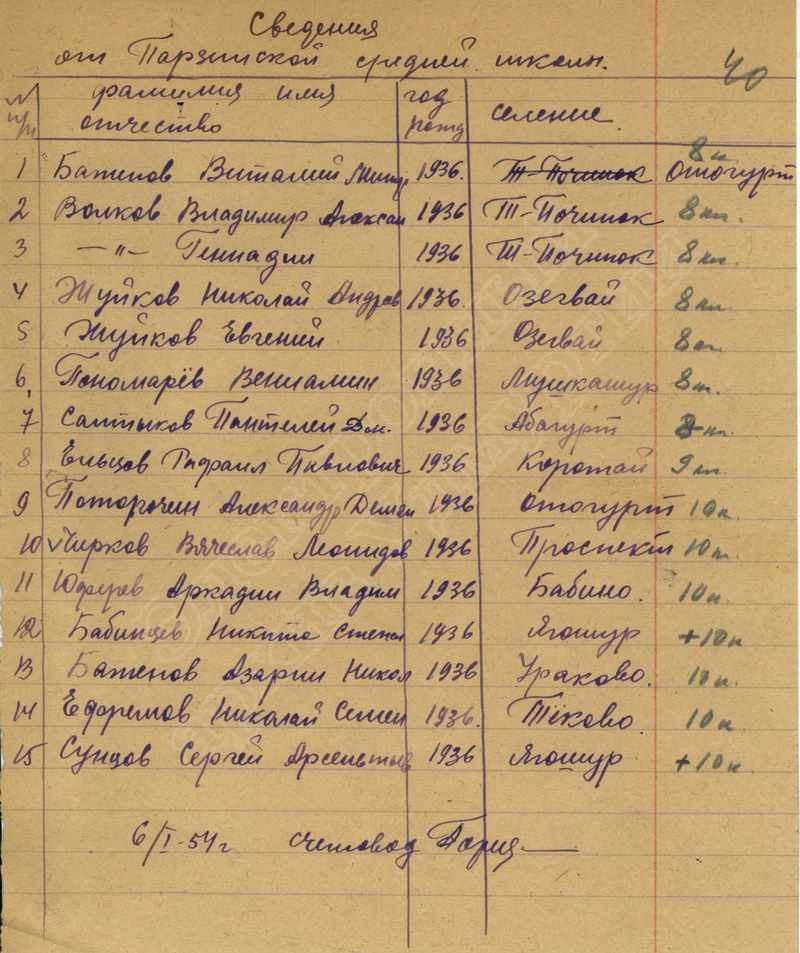 Сведения
от Парзинской средней школы.
40
№ п/п фамилия имя отчество год рожд селение
1 Баженов Виталий 1936. Т-Починок Отогурт 8 к
2 Волков Владимир Алексан 1936 Т-Починок 8 кл.
3 —"— Геннадии 1936 Т-Починок 8 кл.
4 Жуйков Николай Андрев 1936. Озегвай 8 кл.
5 Жуйков Евгений 1936 Озегвай 8 кл.
6 Пономарёв Вениамин 1936 Мушкашур 8 кл.
7 Салтыков Пантелей Дм. 1936 Абагурт 8 кл.
8 Ельцов Рафаил Павлович 1936 Коротай 9 кл.
9 Поторочин Александр Демен 1936 Отогурт 10 к.
10 Чирков Вячеслав Леонидов 1936 Проспект 10 к.
11 Юферев Аркадии Владим 1936 Бабино. 10 к.
12 Бабинцев Никита Степан 1936 Ягошур +10 к
13 Баженов Азарии Никол 1936 Ураково. 10 к.
14 Ефремов Николай Семен 1936. Тёково. 10 к.
15 Сунцов Сергей Арсентьев 1936 Ягошур +10 к
6/I-54 г счетовод